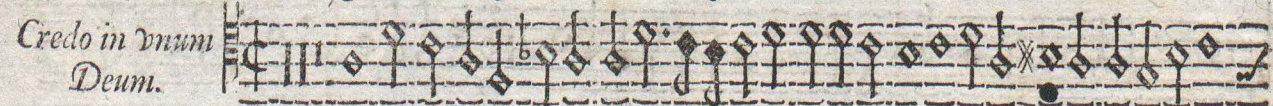 Credo in vnum
Deum.